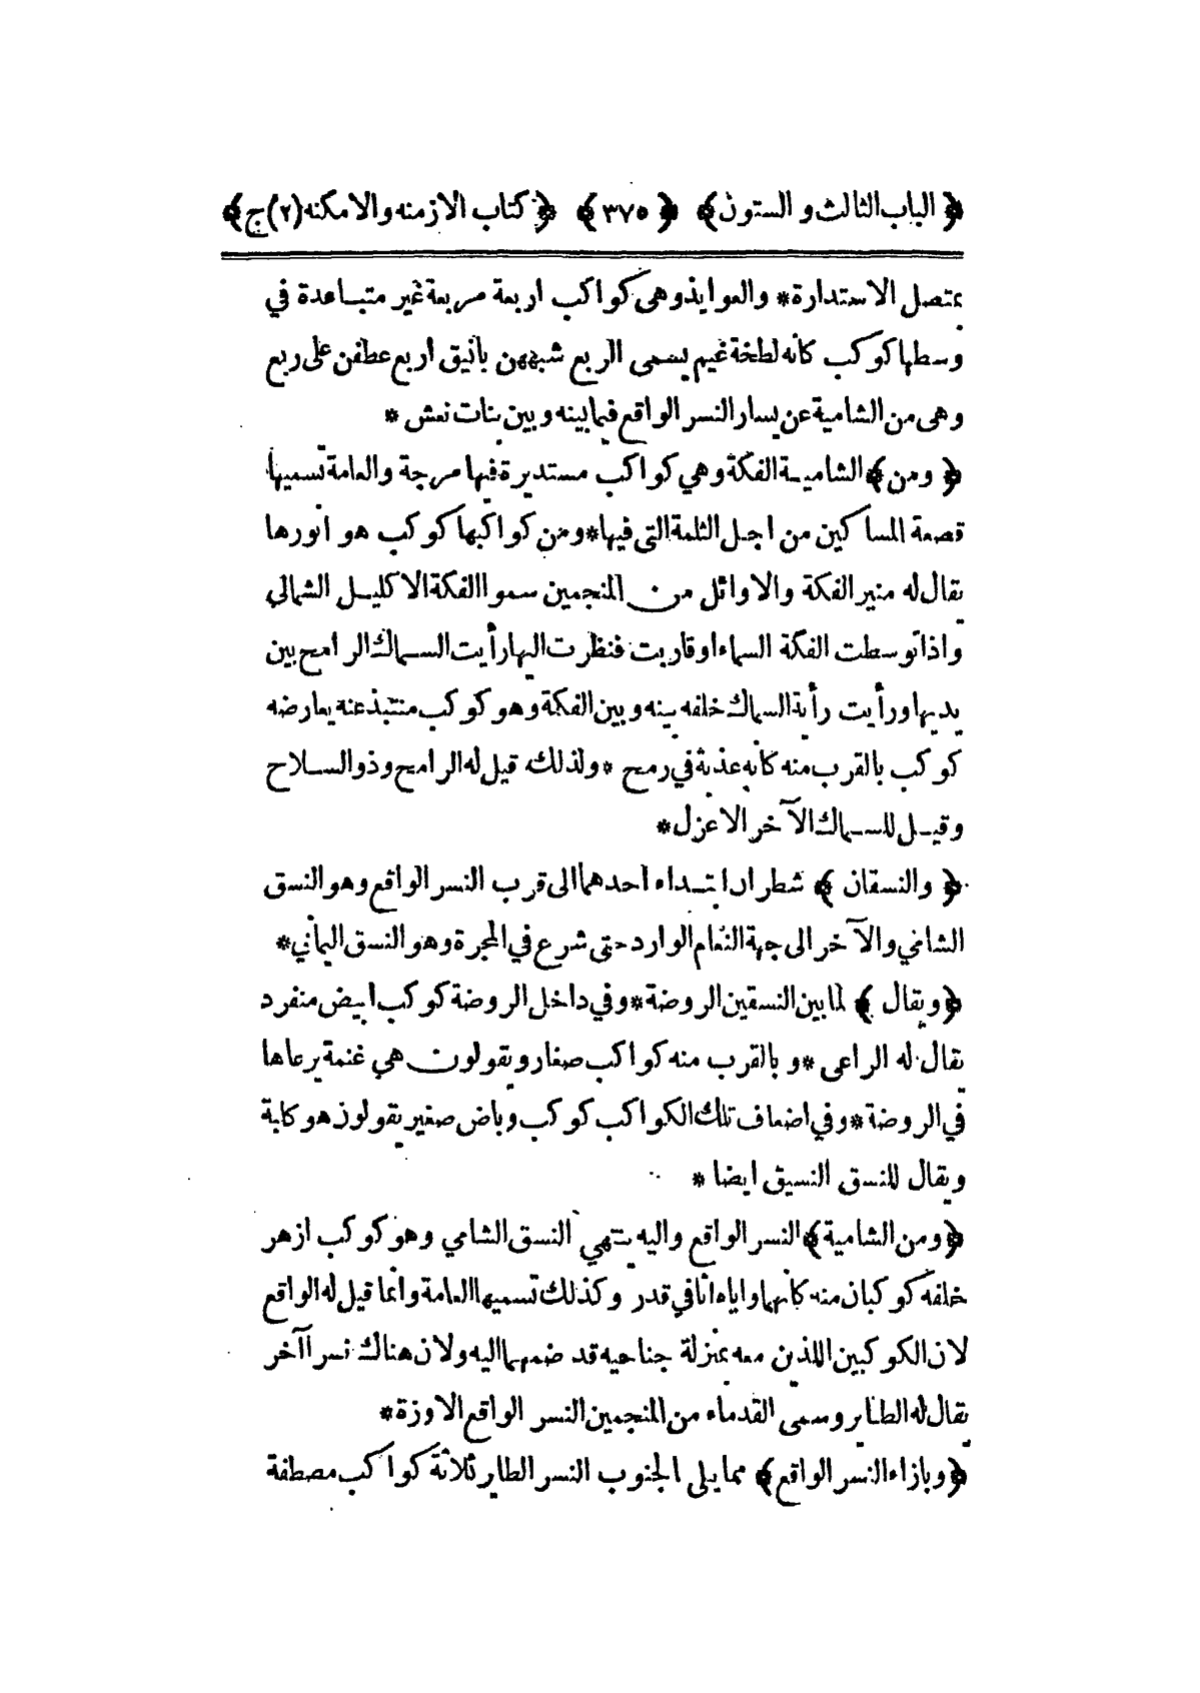 ﴿ الباب الثالث و الستون ﴾ ﴿ ٣٧٥ ﴾ ﴿ كتاب الازمنه والامكنه (٢) ج ﴾
بمتصل الاستدارة * والعوايذ وهى كواكب اربعة مربعة غير متباعدة في
وسطها كوكب كأنه لطخة غيم يسمى الربع شبههن بانيق اربع عطفن على ربع
وهى من الشامية عن يسار النسر الواقع فيما بينه وبين بنات نعش *
﴿ ومن ﴾ الشامية الفكة وهي كواكب مستديرة فيها مرجة والعامة تسميها
قصعة المساكين من اجل الثلمة التى فيها * ومن كواكبها كوكب هو انورها
يقال له منير الفكة والاوائل من المنجمين سموا الفكة الاكليل الشمالي
واذا توسطت الفكة السماء اوقاربت فنظرت اليها رأيت السماك الرامح بين
يديها ورأيت رأية السماك خلفه بينه وبين الفكة وهو كوكب منتبذ عنه يعارضه
كوكب بالقرب منه كأنه عذبة في رمح * ولذلك قيل له الرامح وذو السلاح
وقيل للسماك الآخر الاعزل *
﴿ والنسقان ﴾ شطران ابتداء احدهما الى قرب النسر الواقع وهو النسق
الشامي والآخر الى جهة النعام الوارد حتى شرع في المجرة وهو النسق اليماني *
﴿ ويقال ﴾ لما بين النسقين الروضة * وفي داخل الروضة كوكب ابيض منفرد
يقال له الراعى * و بالقرب منه كواكب صغار ويقولون هي غنمة يرعاها
في الروضة * وفي اضعاف تلك الكواكب كوكب وباض صغير يقولون هو كلبة
ويقال للنسق النسيق ايضا *
﴿ ومن الشامية ﴾ النسر الواقع واليه ينتهي النسق الشامي وهو كوكب ازهر
خلفه كوكبان منه كأنهما واياه اثافي قدر وكذلك تسميها العامة وانما قيل له الواقع
لان الكوكبين اللذين معه بمنزلة جناحيه قد ضمهما اليه ولان هناك نسرا آخر
يقال له الطاير وسمى القدماء من المنجمين النسر الواقع الاوزة *
﴿ وبازاء النسر الواقع ﴾ مما يلى الجنوب النسر الطاير ثلاثة كواكب مصطفة